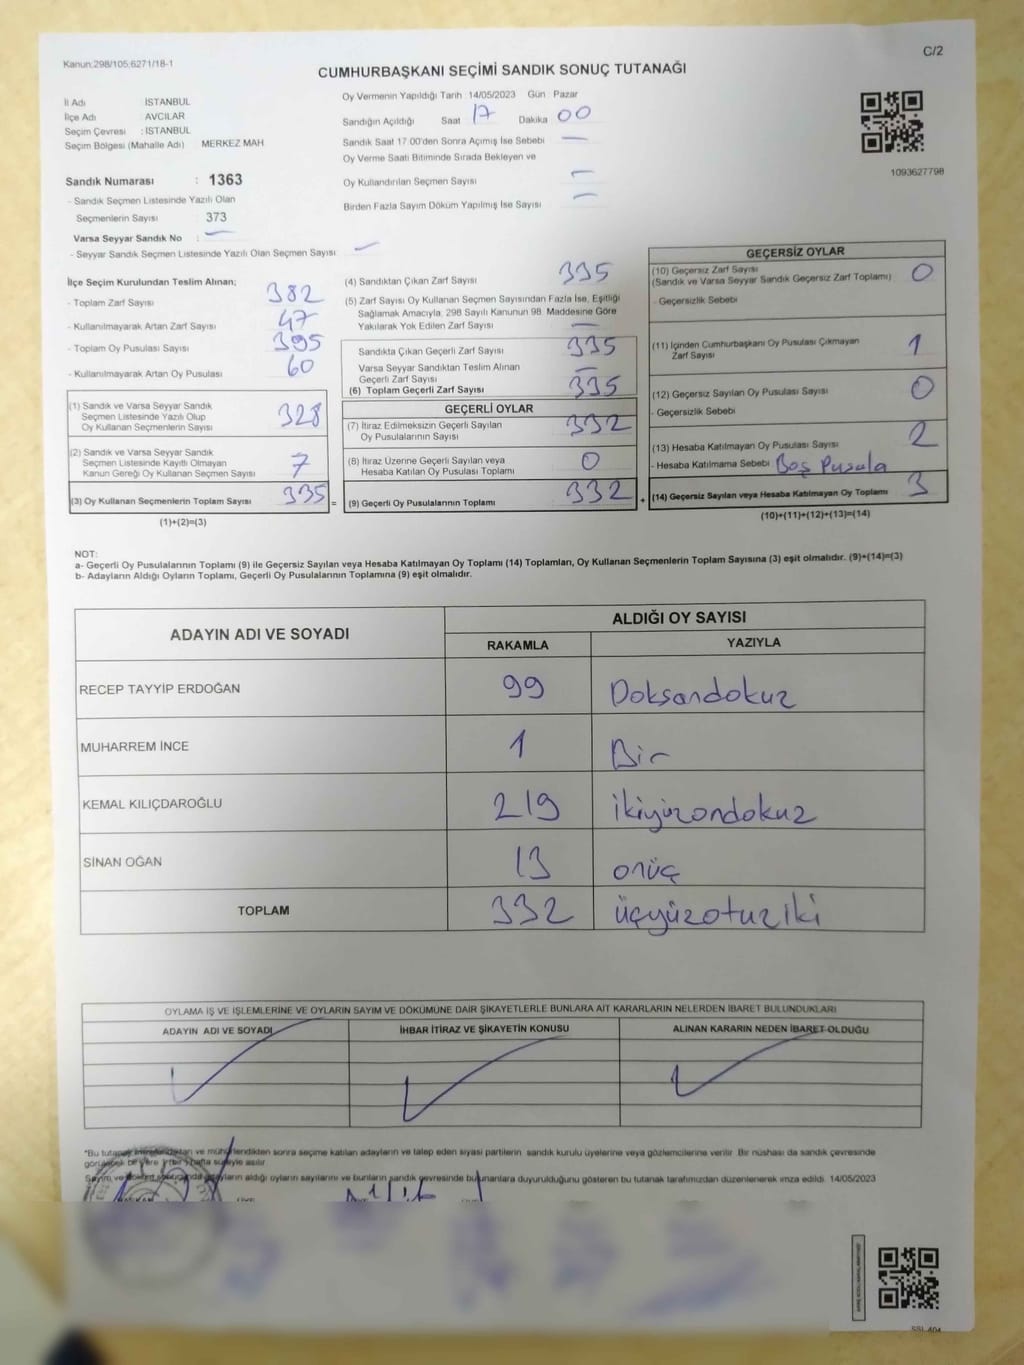 C/2
Kanun:298/105:6271/18-1
CUMHURBAŞKANI SEÇİMİ SANDIK SONUÇ TUTANAĞI
İl Adı İSTANBUL
İlçe Adı AVCILAR
Seçim Çevresi : İSTANBUL
Seçim Bölgesi (Mahalle Adı) MERKEZ MAH
Sandık Numarası : 1363
- Sandık Seçmen Listesinde Yazılı Olan
Seçmenlerin Sayısı 373
Varsa Seyyar Sandık No :
- Seyyar Sandık Seçmen Listesinde Yazılı Olan Seçmen Sayısı
Oy Vermenin Yapıldığı Tarih : 14/05/2023 Gün : Pazar
Sandığın Açıldığı Saat 17 Dakika 00
Sandık Saat 17:00'den Sonra Açımış İse Sebebi
Oy Verme Saati Bitiminde Sırada Bekleyen ve
Oy Kullandırılan Seçmen Sayısı
Birden Fazla Sayım Döküm Yapılmış İse Sayısı
1093627798
İlçe Seçim Kurulundan Teslim Alınan;
- Toplam Zarf Sayısı 382
- Kullanılmayarak Artan Zarf Sayısı 47
- Toplam Oy Pusulası Sayısı 395
- Kullanılmayarak Artan Oy Pusulası 60
(1) Sandık ve Varsa Seyyar Sandık
Seçmen Listesinde Yazılı Olup
Oy Kullanan Seçmenlerin Sayısı 328
(2) Sandık ve Varsa Seyyar Sandık
Seçmen Listesinde Kayıtlı Olmayan
Kanun Gereği Oy Kullanan Seçmen Sayısı 7
(3) Oy Kullanan Seçmenlerin Toplam Sayısı 335 =
(1)+(2)=(3)
(4) Sandıktan Çıkan Zarf Sayısı 335
(5) Zarf Sayısı Oy Kullanan Seçmen Sayısından Fazla İse, Eşitliği
Sağlamak Amacıyla, 298 Sayılı Kanunun 98. Maddesine Göre
Yakılarak Yok Edilen Zarf Sayısı
Sandıkta Çıkan Geçerli Zarf Sayısı 335
Varsa Seyyar Sandıktan Teslim Alınan
Geçerli Zarf Sayısı
(6) Toplam Geçerli Zarf Sayısı 335
GEÇERLİ OYLAR
(7) İtiraz Edilmeksizin Geçerli Sayılan
Oy Pusulalarının Sayısı 332
(8) İtiraz Üzerine Geçerli Sayılan veya
Hesaba Katılan Oy Pusulası Toplamı 0
(9) Geçerli Oy Pusulalarının Toplamı 332 +
GEÇERSİZ OYLAR
(10) Geçersiz Zarf Sayısı
(Sandık ve Varsa Seyyar Sandık Geçersiz Zarf Toplamı) 0
- Geçersizlik Sebebi
(11) İçinden Cumhurbaşkanı Oy Pusulası Çıkmayan
Zarf Sayısı 1
(12) Geçersiz Sayılan Oy Pusulası Sayısı 0
- Geçersizlik Sebebi
(13) Hesaba Katılmayan Oy Pusulası Sayısı 2
- Hesaba Katılmama Sebebi Boş Pusula
(14) Geçersiz Sayılan veya Hesaba Katılmayan Oy Toplamı 3
(10)+(11)+(12)+(13)=(14)
NOT:
a- Geçerli Oy Pusulalarının Toplamı (9) ile Geçersiz Sayılan veya Hesaba Katılmayan Oy Toplamı (14) Toplamları, Oy Kullanan Seçmenlerin Toplam Sayısına (3) eşit olmalıdır. (9)+(14)=(3)
b- Adayların Aldığı Oyların Toplamı, Geçerli Oy Pusulalarının Toplamına (9) eşit olmalıdır.
ADAYIN ADI VE SOYADI ALDIĞI OY SAYISI
RAKAMLA YAZIYLA
RECEP TAYYİP ERDOĞAN 99 Doksandokuz
MUHARREM İNCE 1 Bir
KEMAL KILIÇDAROĞLU 219 ikiyüzondokuz
SİNAN OĞAN 13 onüç
TOPLAM 332 üçyüzotuziki
OYLAMA İŞ VE İŞLEMLERİNE VE OYLARIN SAYIM VE DÖKÜMÜNE DAİR ŞİKAYETLERLE BUNLARA AİT KARARLARIN NELERDEN İBARET BULUNDUKLARI
ADAYIN ADI VE SOYADI İHBAR İTİRAZ VE ŞİKAYETİN KONUSU ALINAN KARARIN NEDEN İBARET OLDUĞU
*Bu tutanak ve mühürlendikten sonra seçime katılan adayların ve talep eden siyasi partilerin sandık kurulu üyelerine veya gözlemcilerine verilir. Bir nüshası da sandık çevresinde
görülebilecek bir yere bir hafta süreyle asılır.
Sayım ve döküm sonucunda adayların aldığı oyların sayılarını ve bunların sandık çevresinde bulunanlara duyurulduğunu gösteren bu tutanak tarafımızdan düzenlenerek imza edildi. 14/05/2023